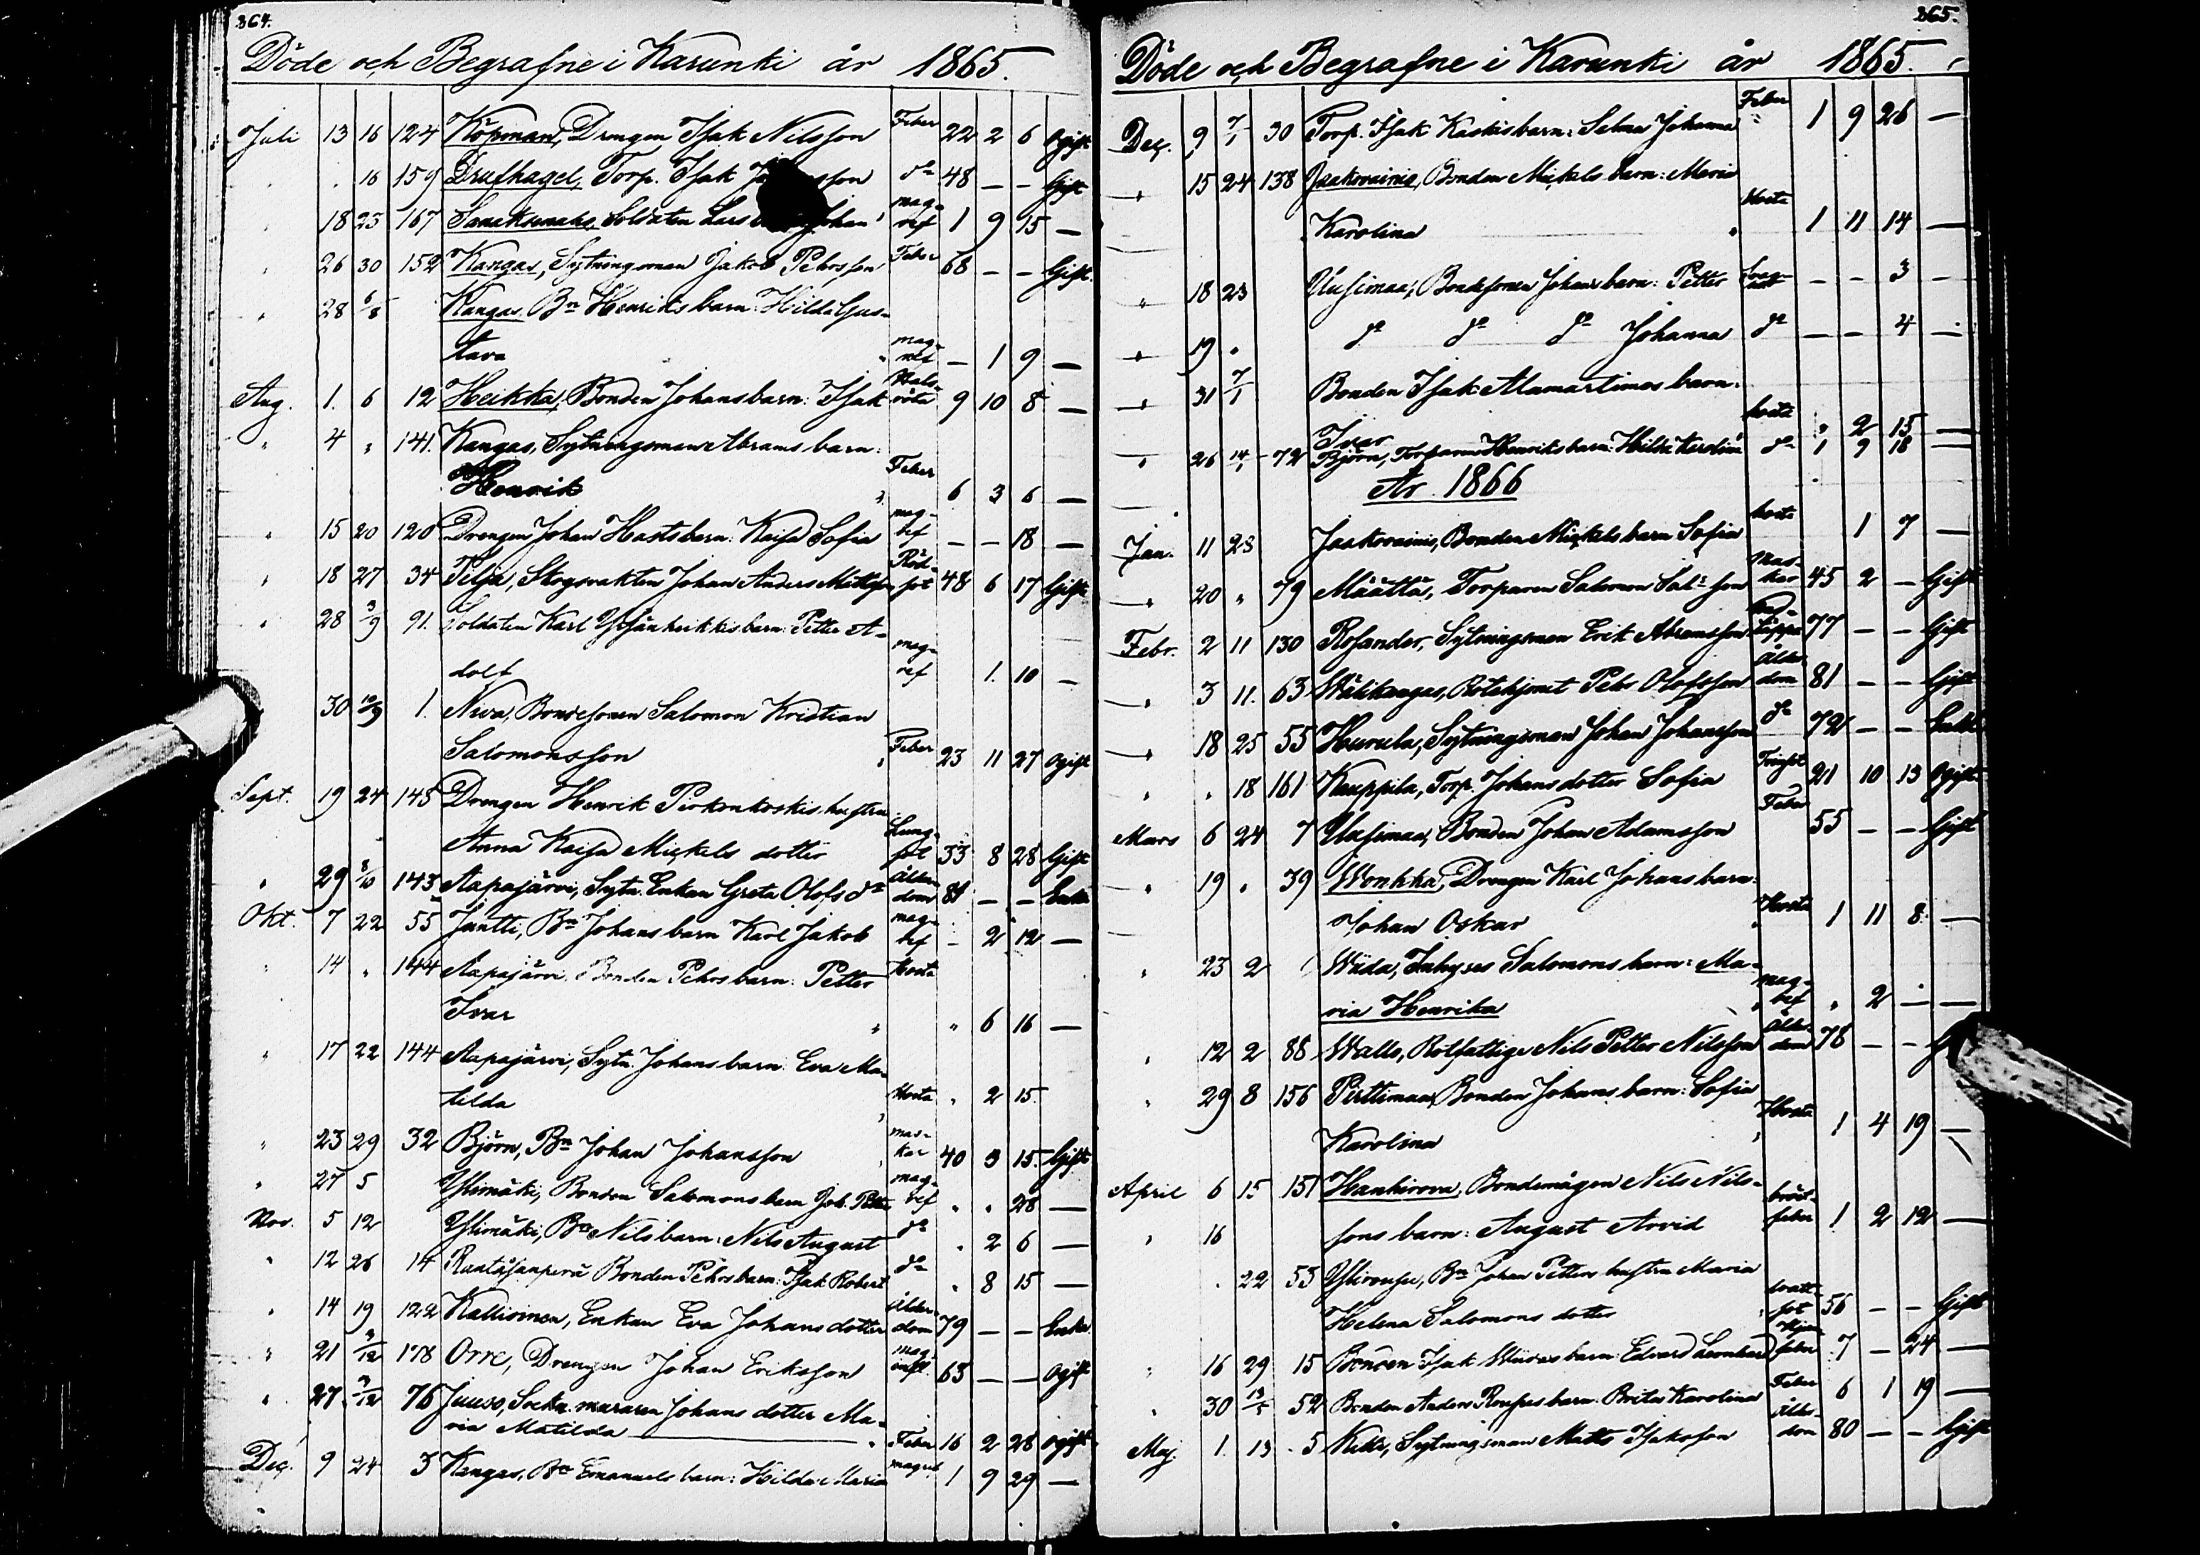 364.
Döde och Begrafne i Karunki år 1865.
Juli 13 16 124 Köpman, Drengen Isak Nilsson Feber 22 2 6 ogift
" 16 159 Torp. Isak do 48 — — Gift
" 18 23 167 Soldaten Lars Johan mag-ref 1 9 15 —
" 26 30 152 Kangas, Sytningsman Jakob Pehrsson Feber 68 — — Gift.
" 28 6/8 Kangas Bn Henriks barn: Hilda Gus-
tava mag-ref — 1 9 —
Aug. 1. 6 12 Heikka, Bonden Johans barn: Isak Hals-röta 9 10 8 —
" 4 " 141. Kangas, Sytningsman Abrams barn:
Henrik Feber 6 3 6 —
" 15 20 120 Drengen Johan Hasts barn: Kaisa Sofia mag-ref — — 18 —
" 18 27 34 Skogsvakten Johan Anders Mattsson Röd-sot 48 6 17 Gift
" 28 3/9 91. Soldaten Karl barn: Petter A-
dolf mag-ref 1. 10 —
30 10/9 1. Niva, Bondesonen Salomon Kristian
Salomonsson Feber 23 11 27 ogift
Sept. 19 24 145 Drengen Henrik Pirkonkoskis hustru
Anna Kaisa Mickels dotter Lung-sot 33 8 28 Gift
" 29 8/10 143 Aapajärvi, Sytn. Enkan Greta Olofs dr Ålder-dom 81 — — Enka
Okt. 7 22 55 Juntti, Bn Johans barn Karl Jakob mag-ref — 2 12 —
" 14 " 144 Aapajärvi Bonden Pehrs barn: Petter Hosta
Ivar " " 6 16 —
" 17 22 144 Aapajärvi, Sytn. Johans barn: Eva Ma-
tilda Hosta " 2 15.
" 23 29 32 Björn, Bn Johan Johansson mas-kar 40 3 15. Gift
" 27 5 Ylimäki, Bonden Salomons barn Joh. Petter mag-ref " " 28 —
Nov. 5 12 Ylimäki, Bn Nils barn: Nils August do " 2 6 —
" 12 26 14 Bonden Pehrs barn: Isak Robert do " 8 15 —
" 14 19 122 Kallioinen, Enkan Eva Johans dotter Ålder-dom 79 — — Enka
" 21 3/12 178 Orre, Drengen Johan Eriksson mag-infl. 63 — — ogift
" 27 3/12 76 Juuso, Sockn. muraren Johans dotter Ma-
ria Matilda " Feber 16 2 28 ogift
Dec. 9 24 3 Kangas, Bn Emanuels barn: Hilda Maria magref 1 9 29 —
365.
Döde och Begrafne i Karunki år 1865.
Dec. 9 7/1 30 Torp. Isak Kaskis barn: Selma Johanna Feber 1 9 26 —
" 15 24 138 Jaakovainio, Bonden Mickels barn: Maria
Karolina Hosta 1 11 14 —
" 18 23 Uusimaa, Bondesonen Johans barn: Petter Svag-het — — 3 —
" 19 " do do do Johanna do — — 4 —
" 31 7/1 Bonden Isak Alamartimos barn:
Ivar hosta " 2 15 —
" 26 14/1 72 Björn, Torparen Henriks barn: Hilda Karolina do 1 9 18 —
År 1866
Jan. 11 23 Jaakovainio, Bonden Mickels barn Sofia hosta 1 7 —
" 20 " 79 Määttä, Torparen Salomon Sals son mas-kar 45 2 — Gift
Febr. 2 11 130 Rosander, Sytningsman Erik Abramsson 77 — — Gift
" 3 11. 63 Rotehjonet Pehr Olofsson Ålder-dom 81 — — Gift
" 18 25 55 Hurula, Sytningsman Johan Johansson do 72 — —
" " 18 161 Kauppila, Torp. Johans dotter Sofia 21 10 13 ogift
Mars 6 24 7 Uusimaa, Bonden Johan Adamsson Feber 55 — — Gift
" 19 " 39 Wonkka, Drengen Karl Johans barn:
Johan Oskar Hosta 1 11 8 —
" 23 2 Wiida, Inhyses Salomons barn: Ma-
ria Henrika mag-ref " 2 — —
" 12 2 88 Rotfattige Nils Petter Nilsson Ålder-dom 78 — —
" 29 8 156 Pirttimaa, Bonden Johans barn: Sofia
Karolina Hosta 1 4 19 —
April 6 15 151 Hankivova, Bondemågen Nils Nils-
" 16 sons barn: August Arvid bröst-feber 1 2 12 —
" 22 53 Bn Johan Petters hustru Maria
Helena Salomons dotter vatt-sot 56 — — Gift
" 16 29 15 Bonden Isak barn: Edvard Leonhard feber 7 — 24 —
" 30 13/5 52 Bonden Anders barn: Brita Karolina Feber 6 1 19 —
Maj 1. 13 5 Sytningsman Matts Isaksson Ålder-dom 80 — — Gift